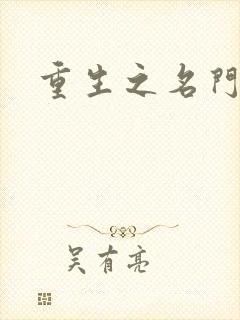 重生之名門
吴有亮